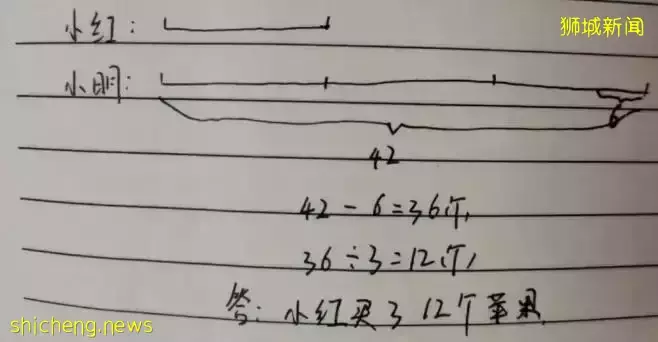 狮城新闻
小红:
小明:
6
42
42-6=36个
36÷3=12个
答:小红买了12个苹果
shicheng.news